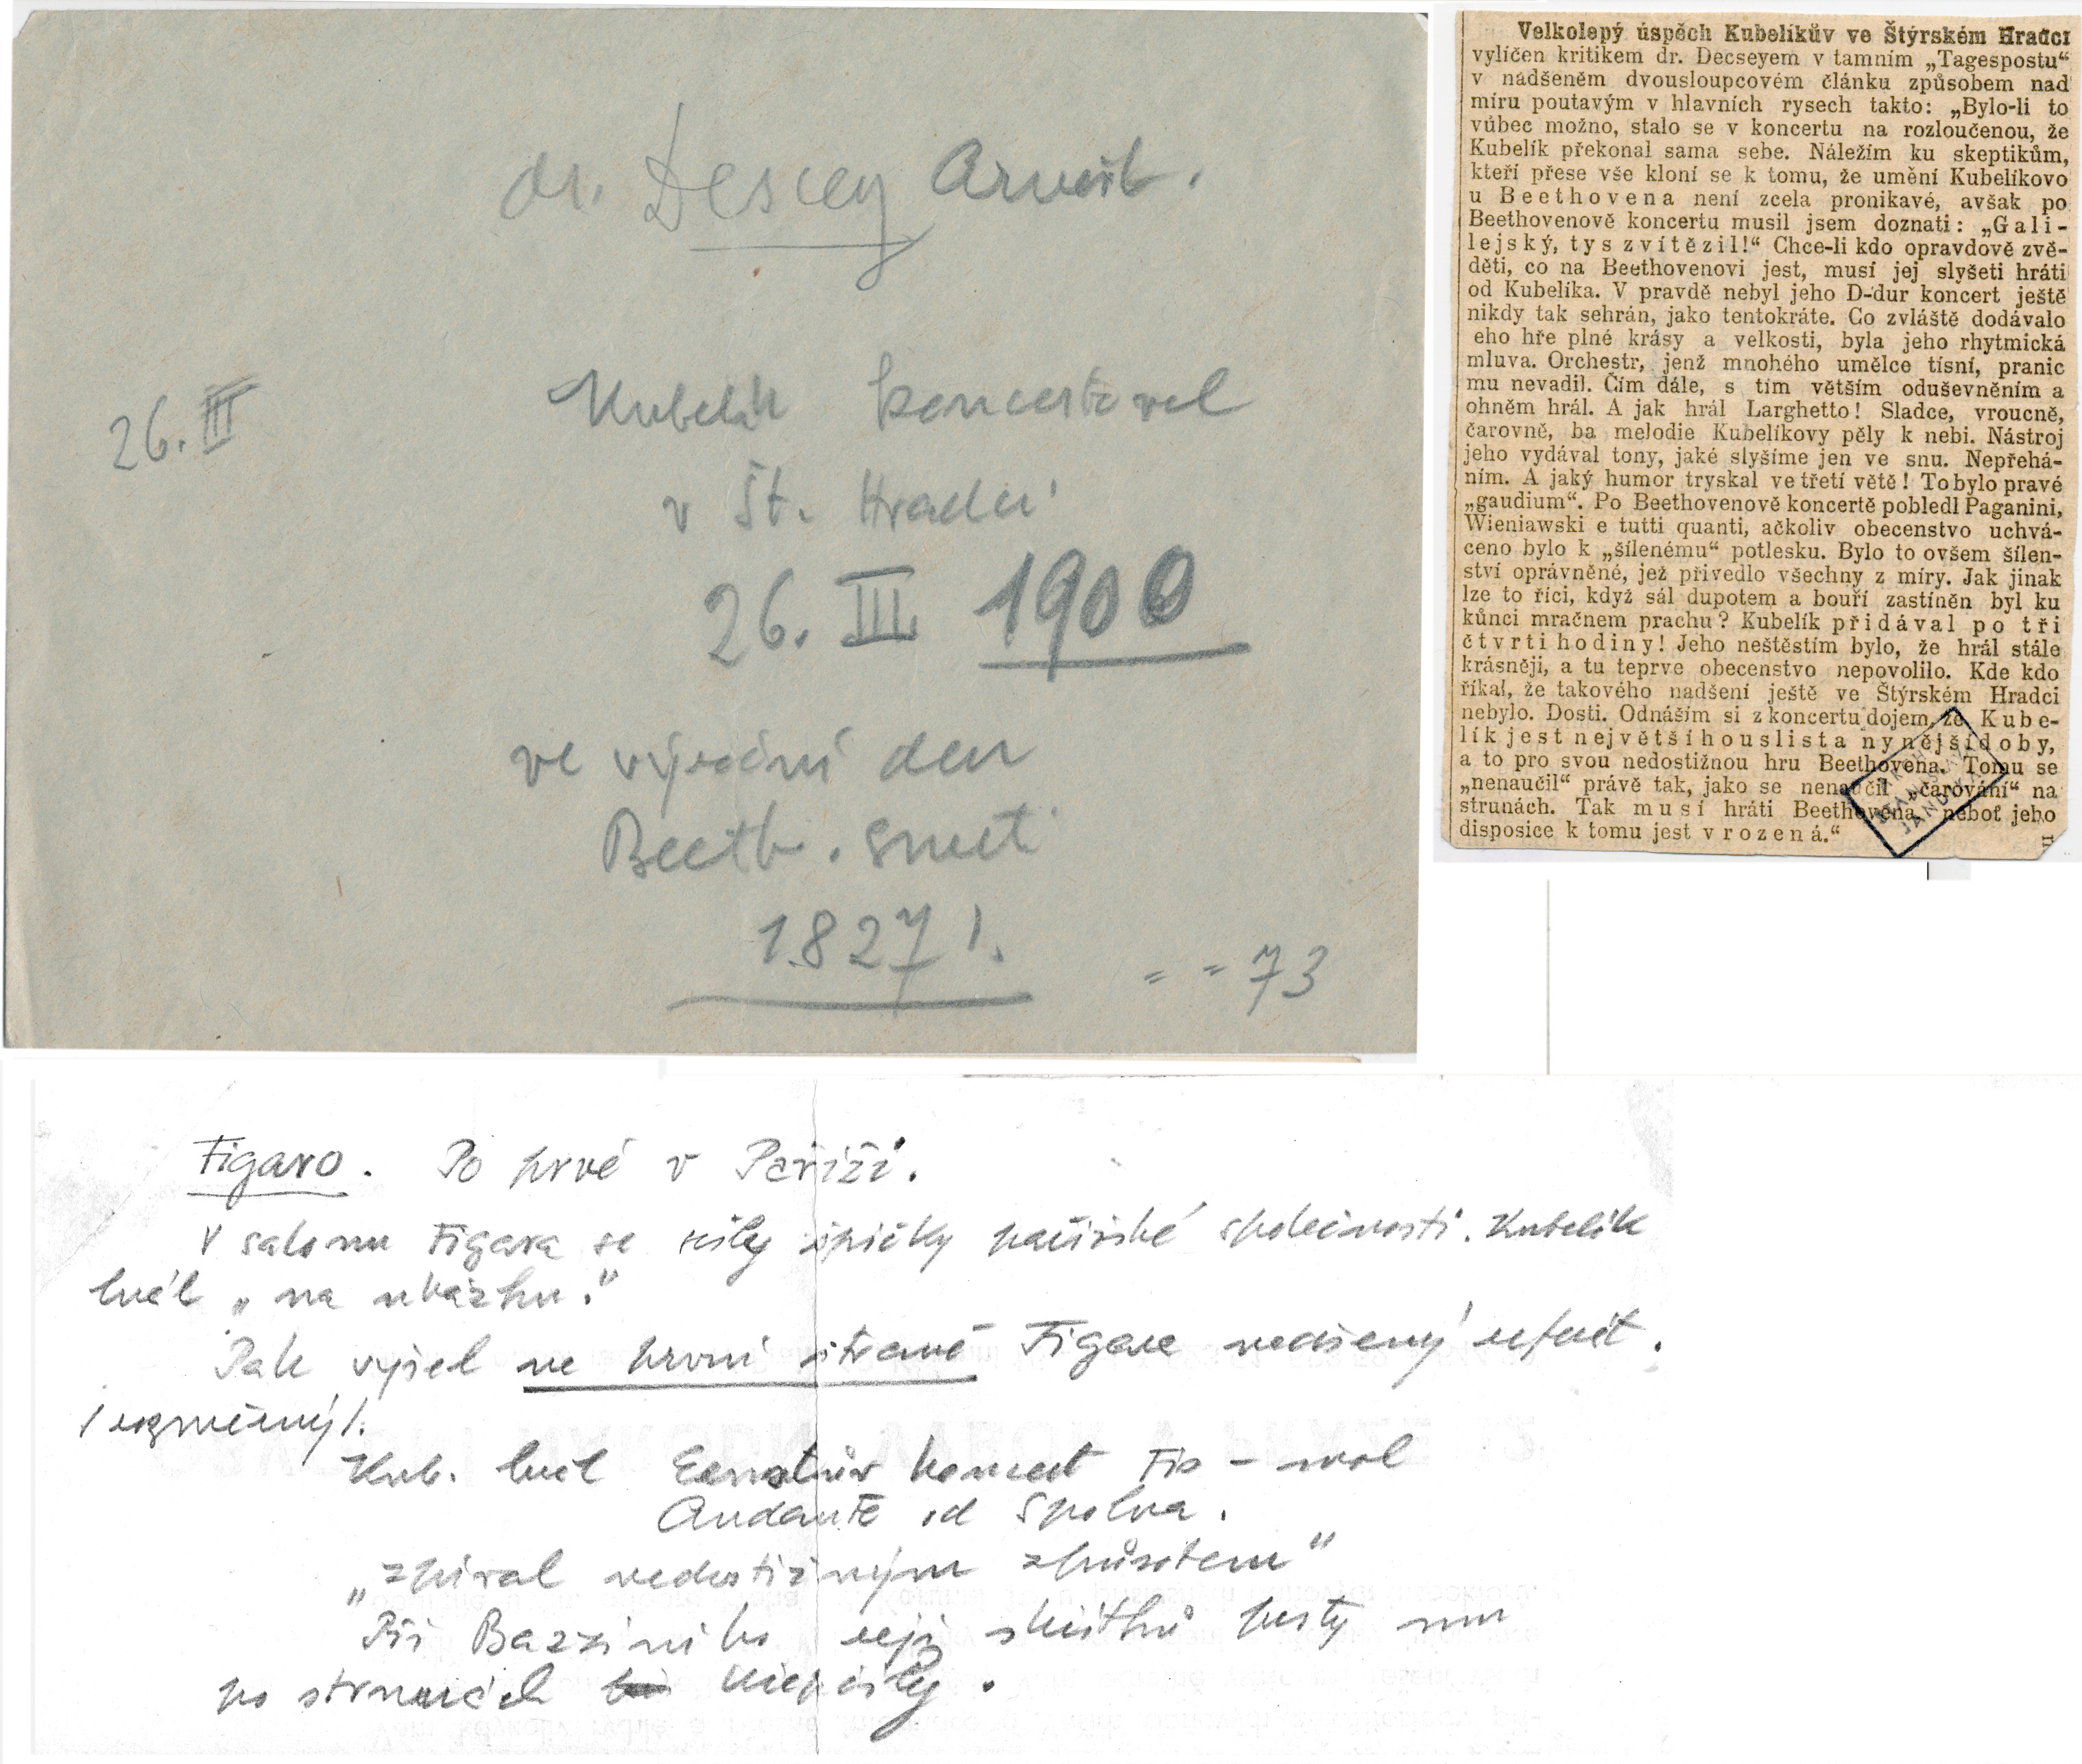 dr. Descey Arnošt.
26. III
Kubelík koncertoval
v Št. Hradci
26. III. 1900
ve výroční den
Beeth. smrti
1827!.
= = 73
Velkolepý úspěch Kubelíkův ve Štýrském Hradci
vylíčen kritikem dr. Decseyem v tamním „Tagespostu“
v nadšeném dvousloupcovém článku způsobem nad
míru poutavým v hlavních rysech takto: „Bylo-li to
vůbec možno, stalo se v koncertu na rozloučenou, že
Kubelík překonal sama sebe. Náležím ku skeptikům,
kteří přese vše kloní se k tomu, že umění Kubelíkovo
u Beethovena není zcela pronikavé, avšak po
Beethovenově koncertu musil jsem doznati: „Gali-
lejský, tys zvítězil!“ Chce-li kdo opravdově zvě-
děti, co na Beethovenovi jest, musí jej slyšeti hráti
od Kubelíka. V pravdě nebyl jeho D-dur koncert ještě
nikdy tak sehrán, jako tentokráte. Co zvláště dodávalo
eho hře plné krásy a velkosti, byla jeho rhytmická
mluva. Orchestr, jenž mnohého umělce tísní, pranic
mu nevadil. Čím dále, s tím větším oduševněním a
ohněm hrál. A jak hrál Larghetto! Sladce, vroucně,
čarovně, ba melodie Kubelíkovy pěly k nebi. Nástroj
jeho vydával tony, jaké slyšíme jen ve snu. Nepřehá-
ním. A jaký humor tryskal ve třetí větě! To bylo pravé
„gaudium“. Po Beethovenově koncertě pobledl Paganini,
Wieniawski e tutti quanti, ačkoliv obecenstvo uchvá-
ceno bylo k „šílenému“ potlesku. Bylo to ovšem šílen-
ství oprávněné, jež přivedlo všechny z míry. Jak jinak
lze to říci, když sál dupotem a bouří zastíněn byl ku
kůnci mračnem prachu? Kubelík přidával po tři
čtvrti hodiny! Jeho neštěstím bylo, že hrál stále
krásněji, a tu teprve obecenstvo nepovolilo. Kde kdo
říkal, že takového nadšení ještě ve Štýrském Hradci
nebylo. Dosti. Odnáším si z koncertu dojem, že Kube-
lík jest největší houslista nynější doby,
a to pro svou nedostižnou hru Beethovena. Tomu se
„nenaučil“ právě tak, jako se nenaučil „čarování“ na
strunách. Tak musí hráti Beethovena, neboť jeho
disposice k tomu jest vrozená.“
Figaro. Po prvé v Paříži.
V salonu Figara se sešly špičky pařížské společnosti. Kubelík
hrál „na ukázku.“
Pak vyšel na první straně Figara nadšený referát.
/ rozměrný /.
Kub. hrál Ernstův koncert Fis - mol
Andante od Spohra.
„zpíval nedostižným způsobem“
Při Bazziniho reji skřítků prsty mu
po strunách křepčily.